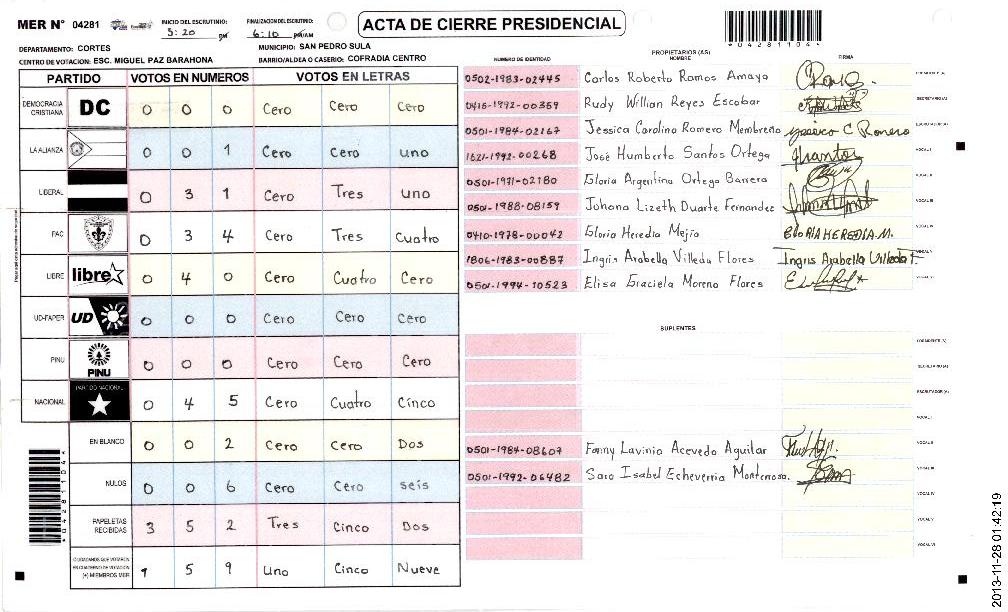 MER N° 04281
INICIO DEL ESCRUTINIO: 5:20 PM
FINALIZACION DEL ESCRUTINIO: 6:10 PM/AM
ACTA DE CIERRE PRESIDENCIAL
*04281104*
DEPARTAMENTO: CORTES
MUNICIPIO: SAN PEDRO SULA
CENTRO DE VOTACION: ESC. MIGUEL PAZ BARAHONA
BARRIO/ALDEA O CASERIO: COFRADIA CENTRO
PARTIDO VOTOS EN NUMEROS VOTOS EN LETRAS
DEMOCRACIA CRISTIANA DC 0 0 0 Cero Cero Cero
LA ALIANZA 0 0 1 Cero Cero uno
LIBERAL 0 3 1 Cero Tres uno
PAC 0 3 4 Cero Tres Cuatro
LIBRE libre 0 4 0 Cero Cuatro Cero
UD-FAPER UD 0 0 0 Cero Cero Cero
PINU PINU 0 0 0 Cero Cero Cero
NACIONAL PARTIDO NACIONAL 0 4 5 Cero Cuatro Cinco
EN BLANCO 0 0 2 Cero Cero Dos
NULOS 0 0 6 Cero Cero seis
PAPELETAS RECIBIDAS 3 5 2 Tres Cinco Dos
CIUDADANOS QUE VOTARON EN CUADERNO DE VOTACION (+) MIEMBROS MER 1 5 9 Uno Cinco Nueve
*04281104*
PROPIETARIOS (AS)
NUMERO DE IDENTIDAD NOMBRE FIRMA
0502-1983-02445 Carlos Roberto Ramos Amaya PRESIDENTE (A)
0416-1992-00359 Rudy Willian Reyes Escobar SECRETARIO (A)
0501-1984-02167 Jessica Carolina Romero Membreño yessica C Romero ESCRUTADOR (A)
1621-1992-00268 José Humberto Santos Ortega VOCAL I
0501-1971-02180 Gloria Argentina Ortega Barrera VOCAL II
0501-1988-08159 Johana Lizeth Duarte Fernandez VOCAL III
0410-1978-00042 Gloria Heredia Mejia GLORIA HEREDIA M. VOCAL IV
1806-1983-00887 Ingris Arabella Villeda Flores Ingris Arabella Villeda F. VOCAL V
0501-1994-10523 Elisa Graciela Moreno Flores VOCAL VI
SUPLENTES
PRESIDENTE (A)
SECRETARIO (A)
ESCRUTADOR (A)
VOCAL I
0501-1984-08607 Fanny Lavinia Acevedo Aguilar VOCAL II
0501-1992-06482 Sara Isabel Echeverria Monterroso. VOCAL III
VOCAL IV
VOCAL V
VOCAL VI
2013-11-28 01:42:19